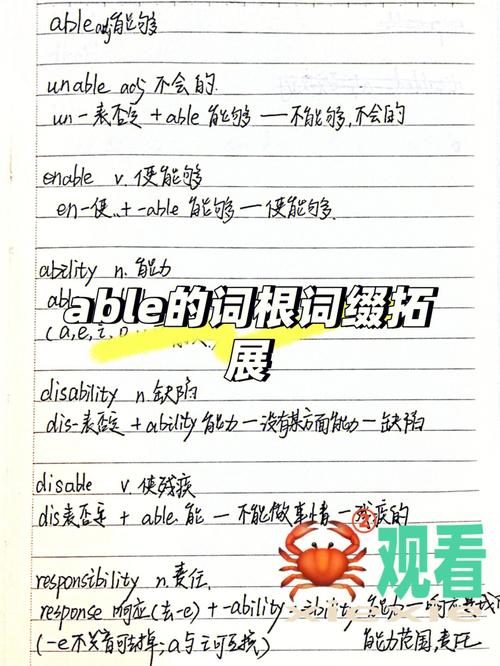 able adj 能够
unable adj 不会的.
un-表否定 + able 能够 — 不能够,不会的
enable v. 使能够
en-使.. + -able 能够 — 使能够.
ability n. 能力
able的词根词缀拓
展
(a,e,i,o
disability n.缺陷
dis-表否定 + ability 能力 — 没有某方面能力 — 缺陷
disable v. 使残疾
dis表否定 + able. 能 — 不能做事情 — 残疾的
观看
responsibility n.责任.
response 响应(去-e) + -ability
(-e不发音可去掉;a与i可互换)
能力范围,责任